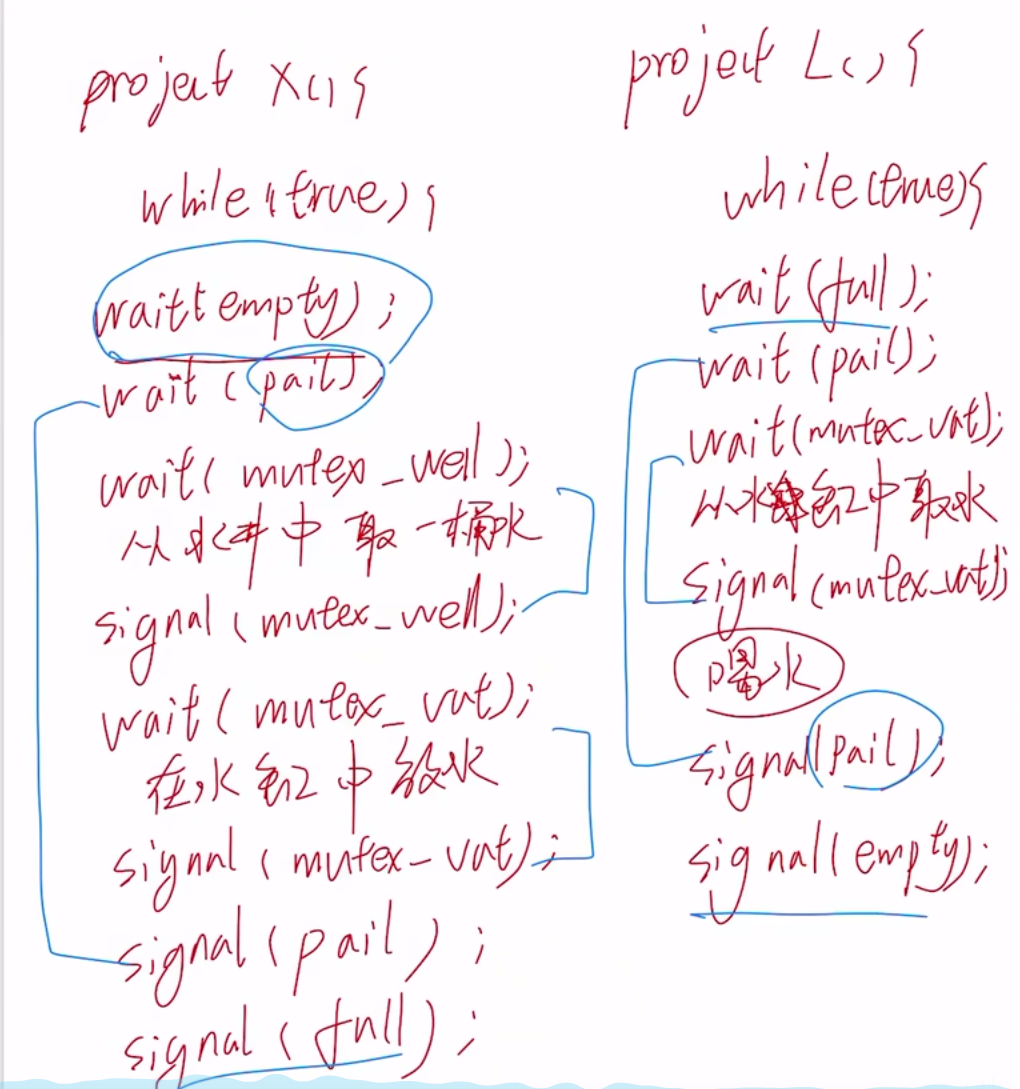 project X() {
while(true) {
wait(empty);
wait(pail);
wait(mutex_well);
从水井中取一桶水
signal(mutex_well);
wait(mutex_vat);
在水缸中放水
signal(mutex-vat);
signal(pail);
signal(full);
project L() {
while(true){
wait(full);
wait(pail);
wait(mutex_vat);
从水缸中取水
signal(mutex_vat);
喝水
signal(pail);
signal(empty);